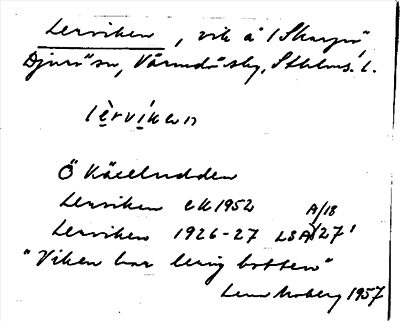 Lerviken, vik å / Skarpö
Djurö sn, Värmdö skg, Sthlms l.
lèrvíkan
Ö Käceludden
Lerviken ek 1952 A/18
Lerviken 1926-27 LSA 27'
"Viken har lerig botten"
Lena Moberg 1957